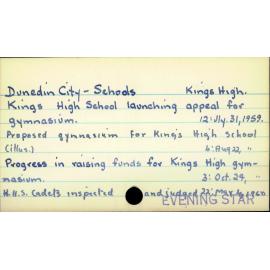 Dunedin City - Schools Kings High.
Kings High School launching appeal for
gymnasium. 12: Jly. 31, 1959.
Proposed gymnasium for King's High School
(illus.) 4: Aug 22, "
Progress in raising funds for Kings High gym-
nasium. 3: Oct. 29, "
K.H.S. Cadets inspected and judged 22: May 6, 1960
EVENING STAR